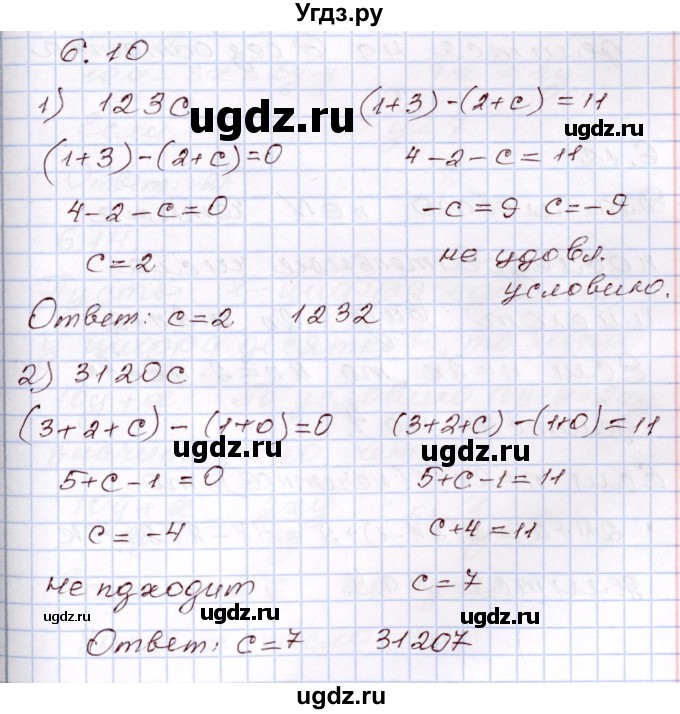 Угдз.ру
6.10
1) 123c (1+3)-(2+c)=11
ugdz.ru
(1+3)-(2+c)=0 4-2-c=11
4-2-c=0 -c=9 c=-9
ugdz.ru ugdz.ru
c=2 не удовл.
условию.
Ответ: c=2 1232
2) 3120c
ugdz.ru
(3+2+c)-(1+0)=0 (3+2+c)-(1+0)=11
ugdz.ru
5+c-1=0 5+c-1=11
c=-4 c+4=11
не пдходит c=7
ugdz.ru ugdz.ru ugdz.ru
Ответ: c=7 31207
ugdz.ru